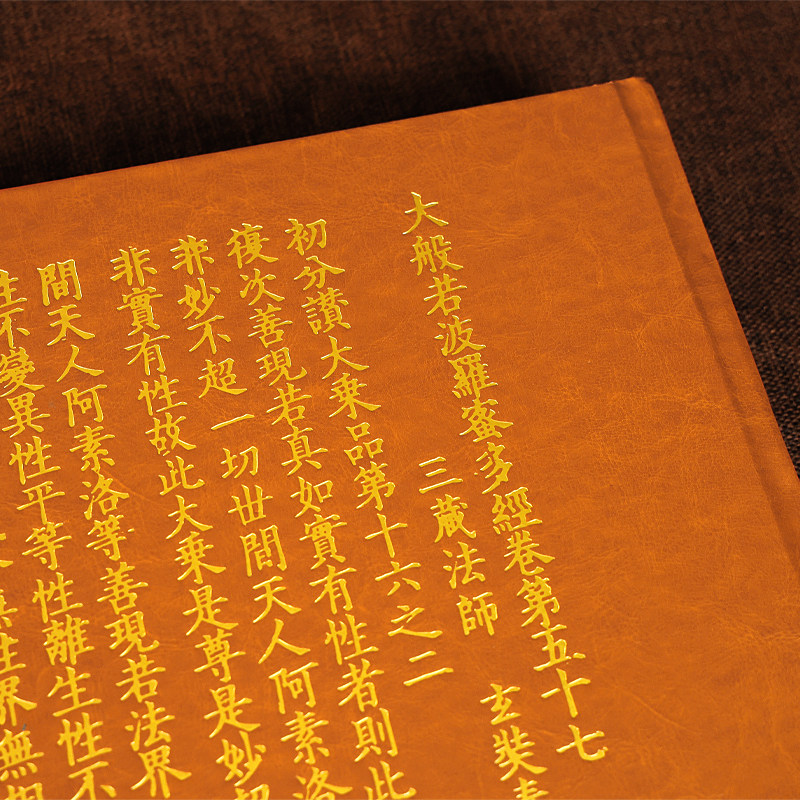 大般若波羅蜜多經卷第五十七
三蔵法師 玄奘奉
初分讃大乗品第十六之二
復次善現若真如實有性者則此
非妙不超一切世間天人阿素洛
非實有性故此大乗是尊是妙超
間天人阿素洛等善現若法界
性不變異性平等性離生性不
性界無